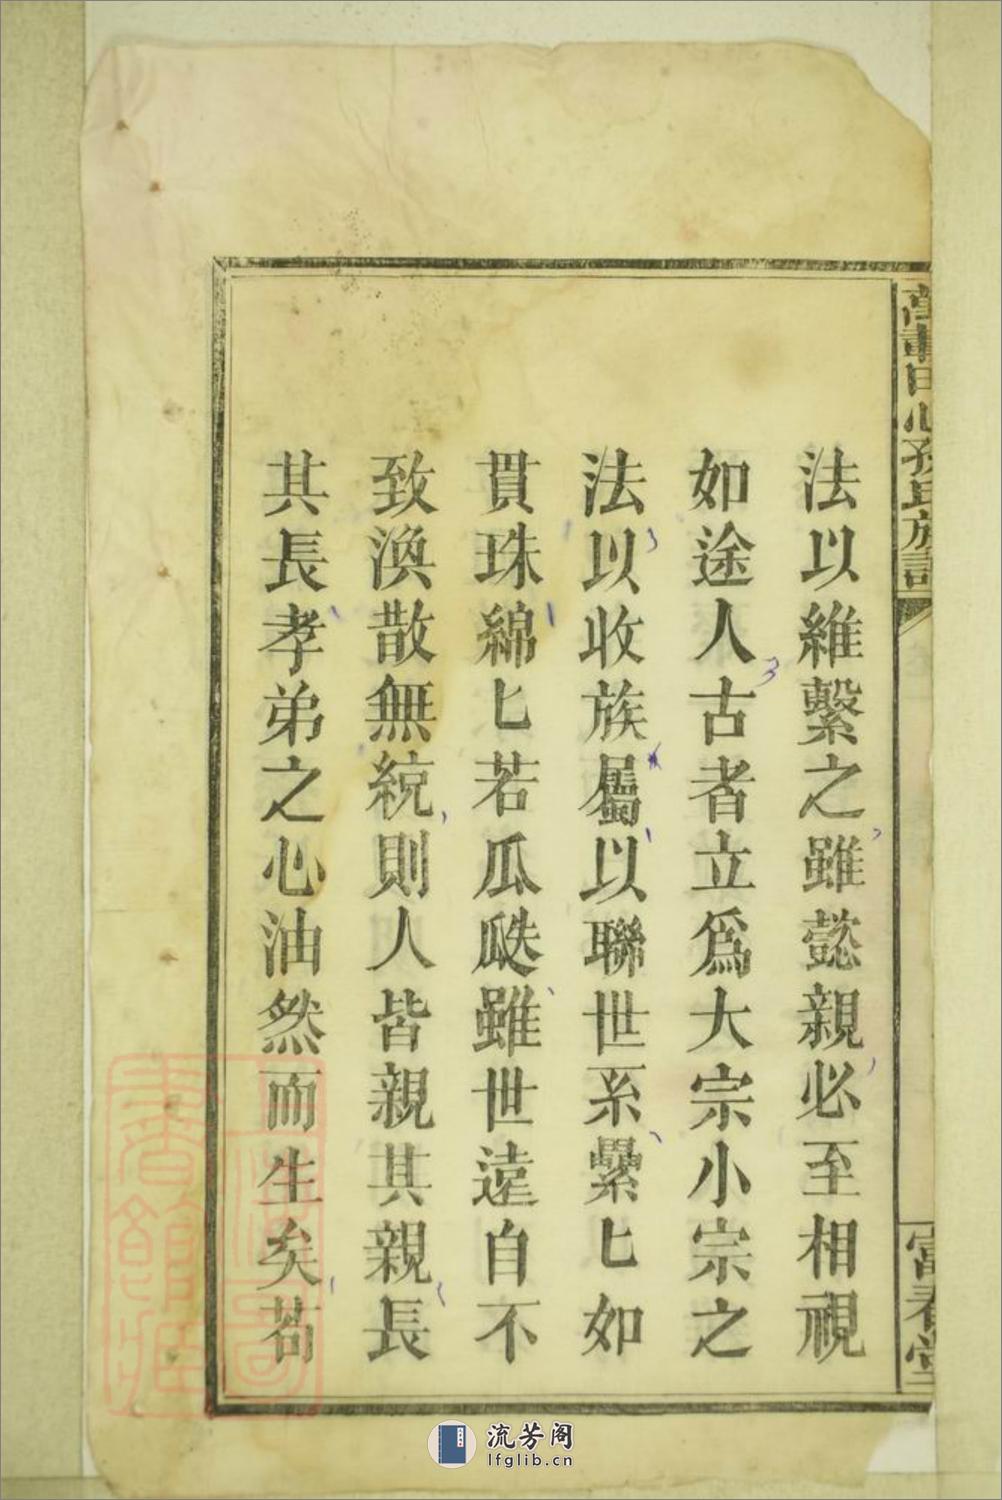 法以維繫之雖懿親必至相視
如途人古者立爲大宗小宗之
法以收族屬以聯世系纍匕如
貫珠綿匕若瓜瓞雖世遠自不
致渙散無統則人皆親其親長
其長孝弟之心油然而生矣茍
田心孫氏族譜
富春堂
流芳阁
lfglib.cn